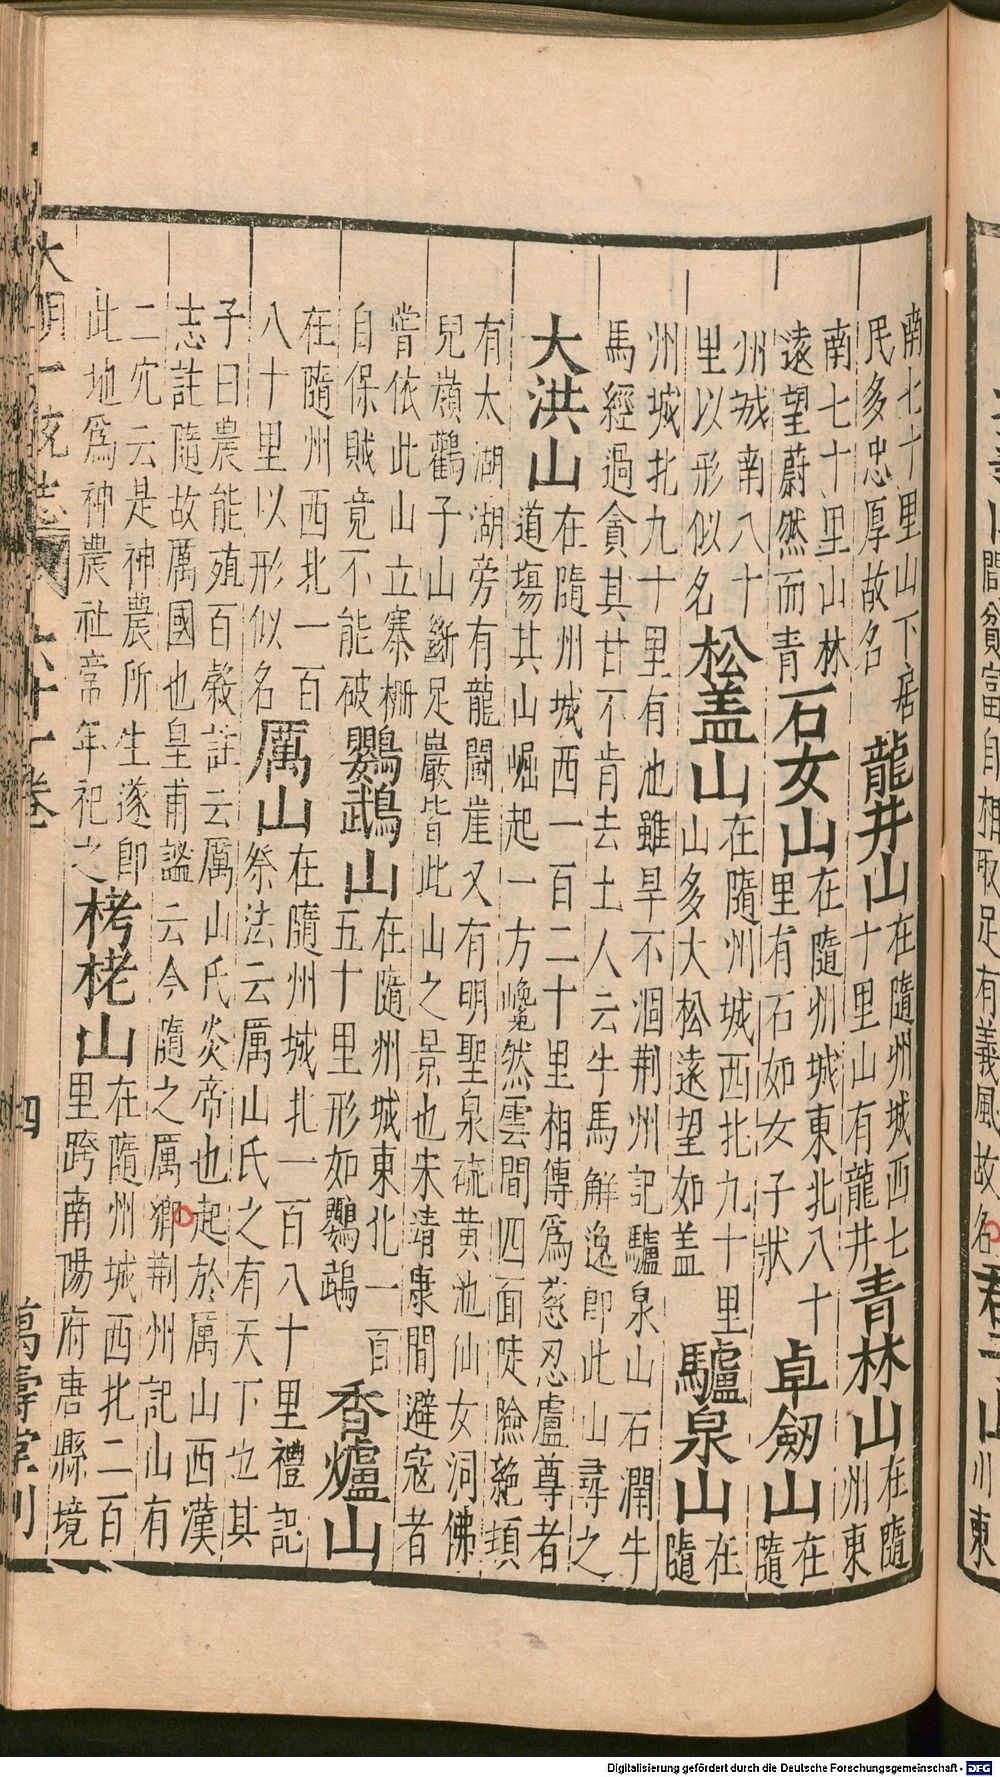 間貧富自相取足有義風故名
南七十里山下居
民多忠厚故名
龍井山
在隨州城西七
十里山有龍井
青林山
在隨
州東
南七十里山林
遠望蔚然而青
石女山
在隨州城東北八十
里有石如女子狀
卓劒山
在
隨
州城南八十
里以形似名
松盖山
在隨州城西北九十里
山多大松遠望如盖
驢泉山
在
隨
州城北九十里有池雖旱不涸荆州記驢泉山石澗牛
馬經過貪其甘不肯去土人云牛馬解逸即此山尋之
大洪山
在隨州城西一百二十里相傳爲慈忍盧尊者
道塲其山崛起一方巉然雲間四面陡險絶頂
有大湖湖旁有龍鬬崖又有明聖泉硫黄池仙女洞佛
兒嶺鸛子山斷足巖皆此山之景也宋靖康間避寇者
甞依此山立寨栅
自保賊竟不能破
鸚鵡山
在隨州城東北一百
五十里形如鸚鵡
香爐山
在隨州西北一百
八十里以形似名
厲山
在隨州城北一百八十里禮記
祭法云厲山氏之有天下也其
子曰農能殖百穀註云厲山氏炎帝也起於厲山西漢
志註隨故厲國也皇甫謐云今隨之厲鄉荆州記山有
二穴云是神農所生遂即
此地爲神農社常年祀之
栲栳山
在隨州城西北二百
里跨南陽府唐縣境
大明一統志 六十一卷 四 萬壽堂刊
Digitalisierung gefördert durch die Deutsche Forschungsgemeinschaft - DFG